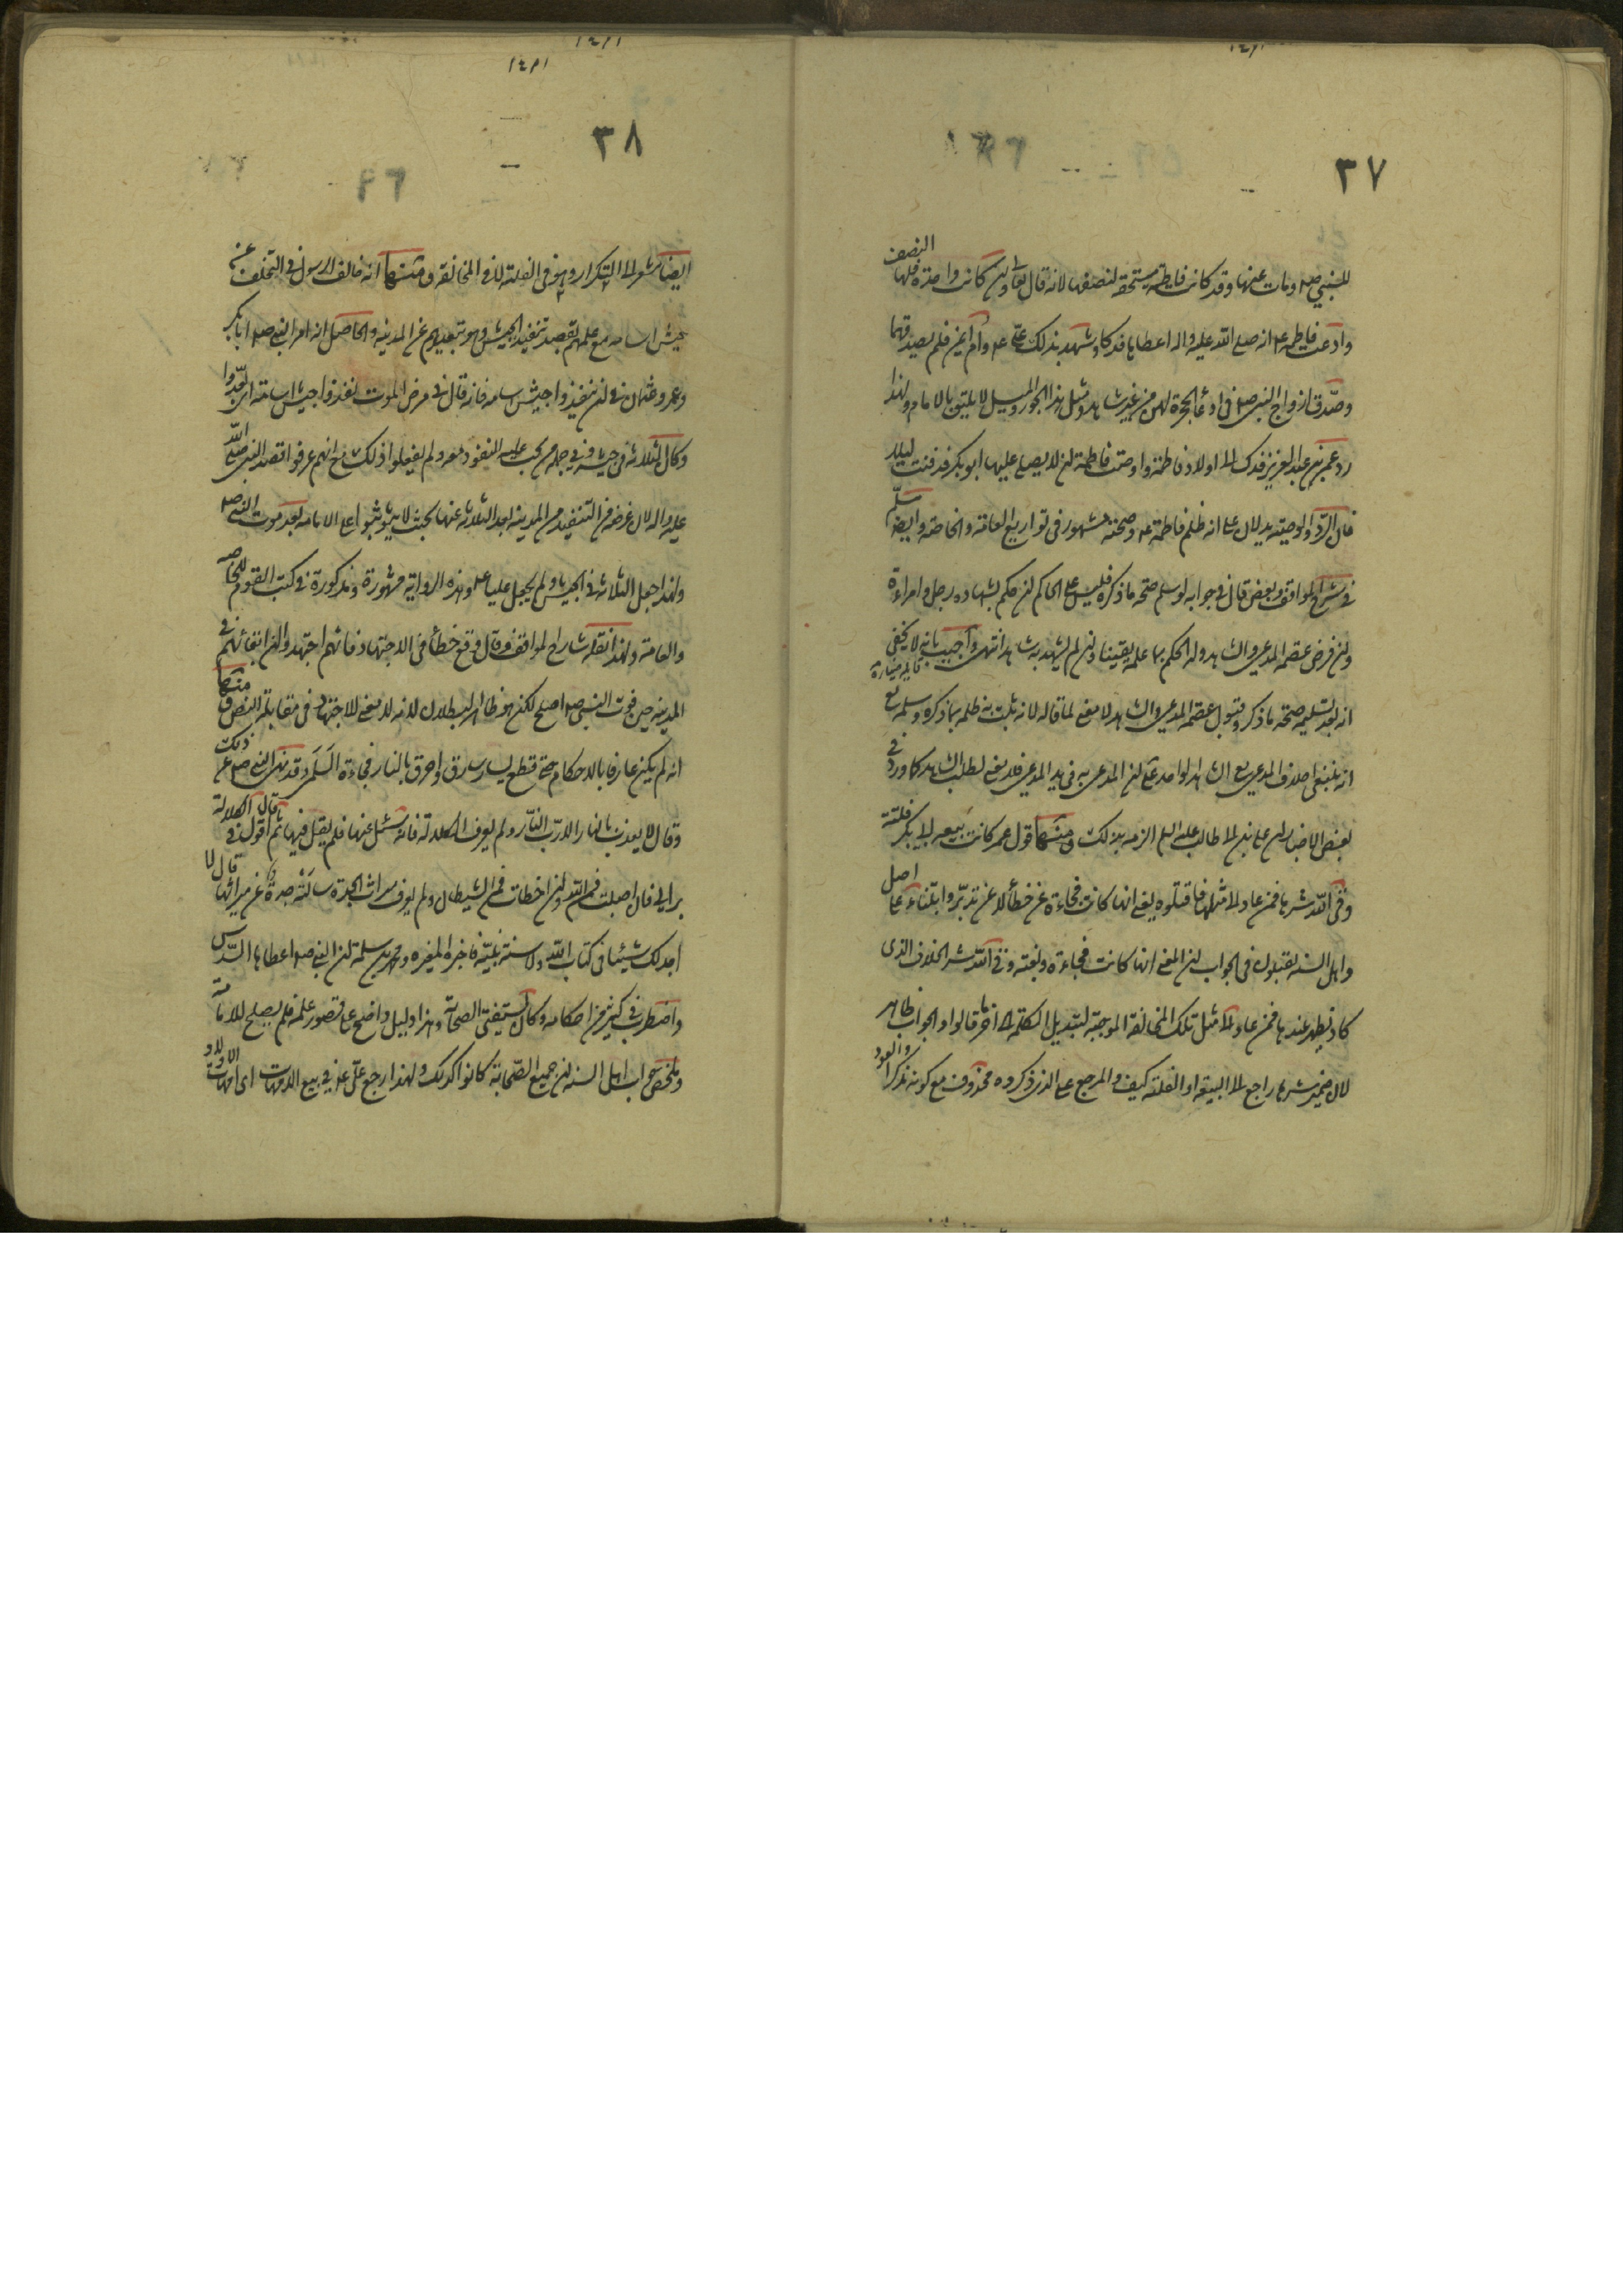 ٣٧
للنبي صم ومات عنها وقد كانت فاطمة مستحقة لنصفها لانه قال تعالى وان كانت واحدة فلها النصف
وادعت فاطمة ع انه صلى الله عليه واله اعطاها فدكا وشهد بذلك علي ع وام ايمن فلم يصدقهما
وصدق ازواج النبي صم في ادعاء الحجرة لهن من غير شاهد ومثل هذا الجور والميل لا يليق بالامام ولهذا
رد عمر بن عبد العزيز فدك الى اولاد فاطمة واوصت فاطمة ان لا يصلي عليها ابو بكر فدفنت ليلا
فان الرد والوصية يدلان على انه ظلم فاطمة ع وصحته مشهور في تواريخ العامة والخاصة وايضا سلم
في شرح المواقف وبعض قال في جوابه لو سلم صحة ما ذكر فليس على الحاكم ان يحكم بشهادة رجل وامراءة
وان فرض عصمة المدعي والشاهد وله الحكم بما علمه يقينا وان لم يشهد به شاهد انتهى واجيب بانه لا يخفى
انه بعد تسليمه صحة ما ذكر وقبول عصمة المدعي والشاهد لا معنى لما قاله لانه ثبت به ظلمه بما ذكره وسلمه مع
انه ينبغي احلاف المدعي مع الشاهد الواحد على ان المدعى به في يد المدعي فلا معنى لطلب الشاهد كما ورد في
بعض الاخبار ان علي بن ابي طالب عليه السلم الزمه بذلك ومنها قول عمر كانت بيعة ابي بكر فلتة
وقى الله شرها فمن عاد الى مثلها فاقتلوه يعني انها كانت فجاءة عن خطأ لا عن تدبر وابتناء على اصل
واهل السنة يقبلون في الجواب ان المعنى انها كانت فجاءة وبغتة وقى الله شر الخلاف الذي
كاد يظهر عندها فمن عاد الى مثل تلك المخالفة الموجبة لتبديل الكلمة الى اخر ما قالوا والجواب ظاهر
لان ضمير شرها راجع الى البيعة او الفلتة كيف والمرجع على الذي ذكروه محذوف مع كونه مذكرا والعود
٣٨
ايضا مشعر الى التكرار وهو في الفلتة لا في المخالفة ومنها انه خالف الرسول في التخلف عن
جيش اسامه مع علمهم بقصد تنفيذ الجيش وهو تبعيدهم عن المدينه والحاصل انه امر النبي صم ابا بكر
وعمر وعثمان في ان ينفذوا جيش اسامه فانه قال في مرض الموت نفذوا جيش اسامة اي ابعدوا
وكان الثلاثة في جيشه وفي جملة من يجب عليه النفوذ معه ولم يفعلوا ذلك مع انهم عرفوا قصد النبي صلى الله
عليه واله لان غرضه من التنفيذ من المدينه ابعد الثلاثة عنها بحيث لا يتوثبوا على الامامه بعد موت النبي صم
ولهذا جعل الثلاثة في الجيش ولم يجعل عليا ع وهذه الرواية مشهورة ومذكورة في كتب القوم للخاصه
والعامة ولهذا نقله شارح المواقف وقال وقع خطأ في الاجتهاد فانهم اجتهدوا ان ابقائهم في
المدينه حين فوت النبي صم اصلح لكنه هو ظاهر البطلان لانه لا معنى للاجتهاد في مقابلة النص ومنها
انه لم يكن عارفا بالاحكام حتى قطع يسار سارق واحرق بالنار فجاءة السلمي وقد نهى النبي صم عن ذلك
وقال لا يعذب بالنار الا رب النار ولم يعرف الكلالة فانه سئل عنها فلم يقل فيها ثم قال اقول في الكلالة
برايي فان اصبت فمن الله وان اخطات فمن الشيطان ولم يعرف ميراث الجدة سالته جدة عن ميراثها قال لا
اجد لك شيئا في كتاب الله ولا سنة نبيه فاخبره المغيره ومحمد بن سلمة ان النبي صم اعطاها السدس
واضطرب في كثير من احكامه وكان يستفتي الصحابة وهذا دليل واضح على قصور علمه فلم يصلح للامامة
وملخص جواب اهل السنة ان جميع الصحابة كانوا كذلك ولهذا رجع علي ع في بيع الامهات اي امهات الاولاد